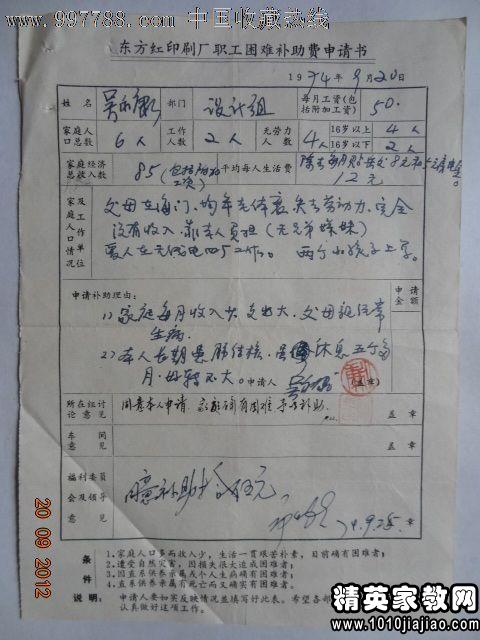 www.997788.com 中国收藏热线
东方红印刷厂职工困难补助费申请书
1974年9月20日
姓名 吴 部门 设计组 每月工资(包括附加工资) 50.
家庭人口总数 6人 工作人数 2人 无劳力人数 4人 16岁以上 4人 16岁以下 2人
家庭经济总收入数 85(包括附加工资) 平均每人生活费 12元
家庭人口情况及工作单位
父母在海门、均年老体衰、失去劳动力、完全
没有收入、靠本人负担(无兄弟妹妹)
爱人在无线电四厂工作。 两个小孩子上学。
申请补助理由: 申请金额
1)家庭每月收入少、支出大、父母親经常
生病。
2)本人长期患肺结核、休息五个多
月、好转不大。 申请人 (盖章)
所在组讨论意见 同意本人申请、家庭确有困难、予以补助、 盖章
车间意见 盖章
福利委员会及领导意见 同意补助 伍元, 74.9.25 章
条件
1、家庭人口多而收入少,生活一贯艰苦朴素,目前确有困难者;
2、遭受自然灾害,因损失很大造成困难者;
3、因直系供养亲属或个人生病确有困难者;
4、直系供养亲属有死亡而又确实有困难者;
说明: 申请人要如实反映情况並填写好此表。希望各部
认真做好这项工作。
20 09 2012
精英家教网
www.1010jiajiao.com